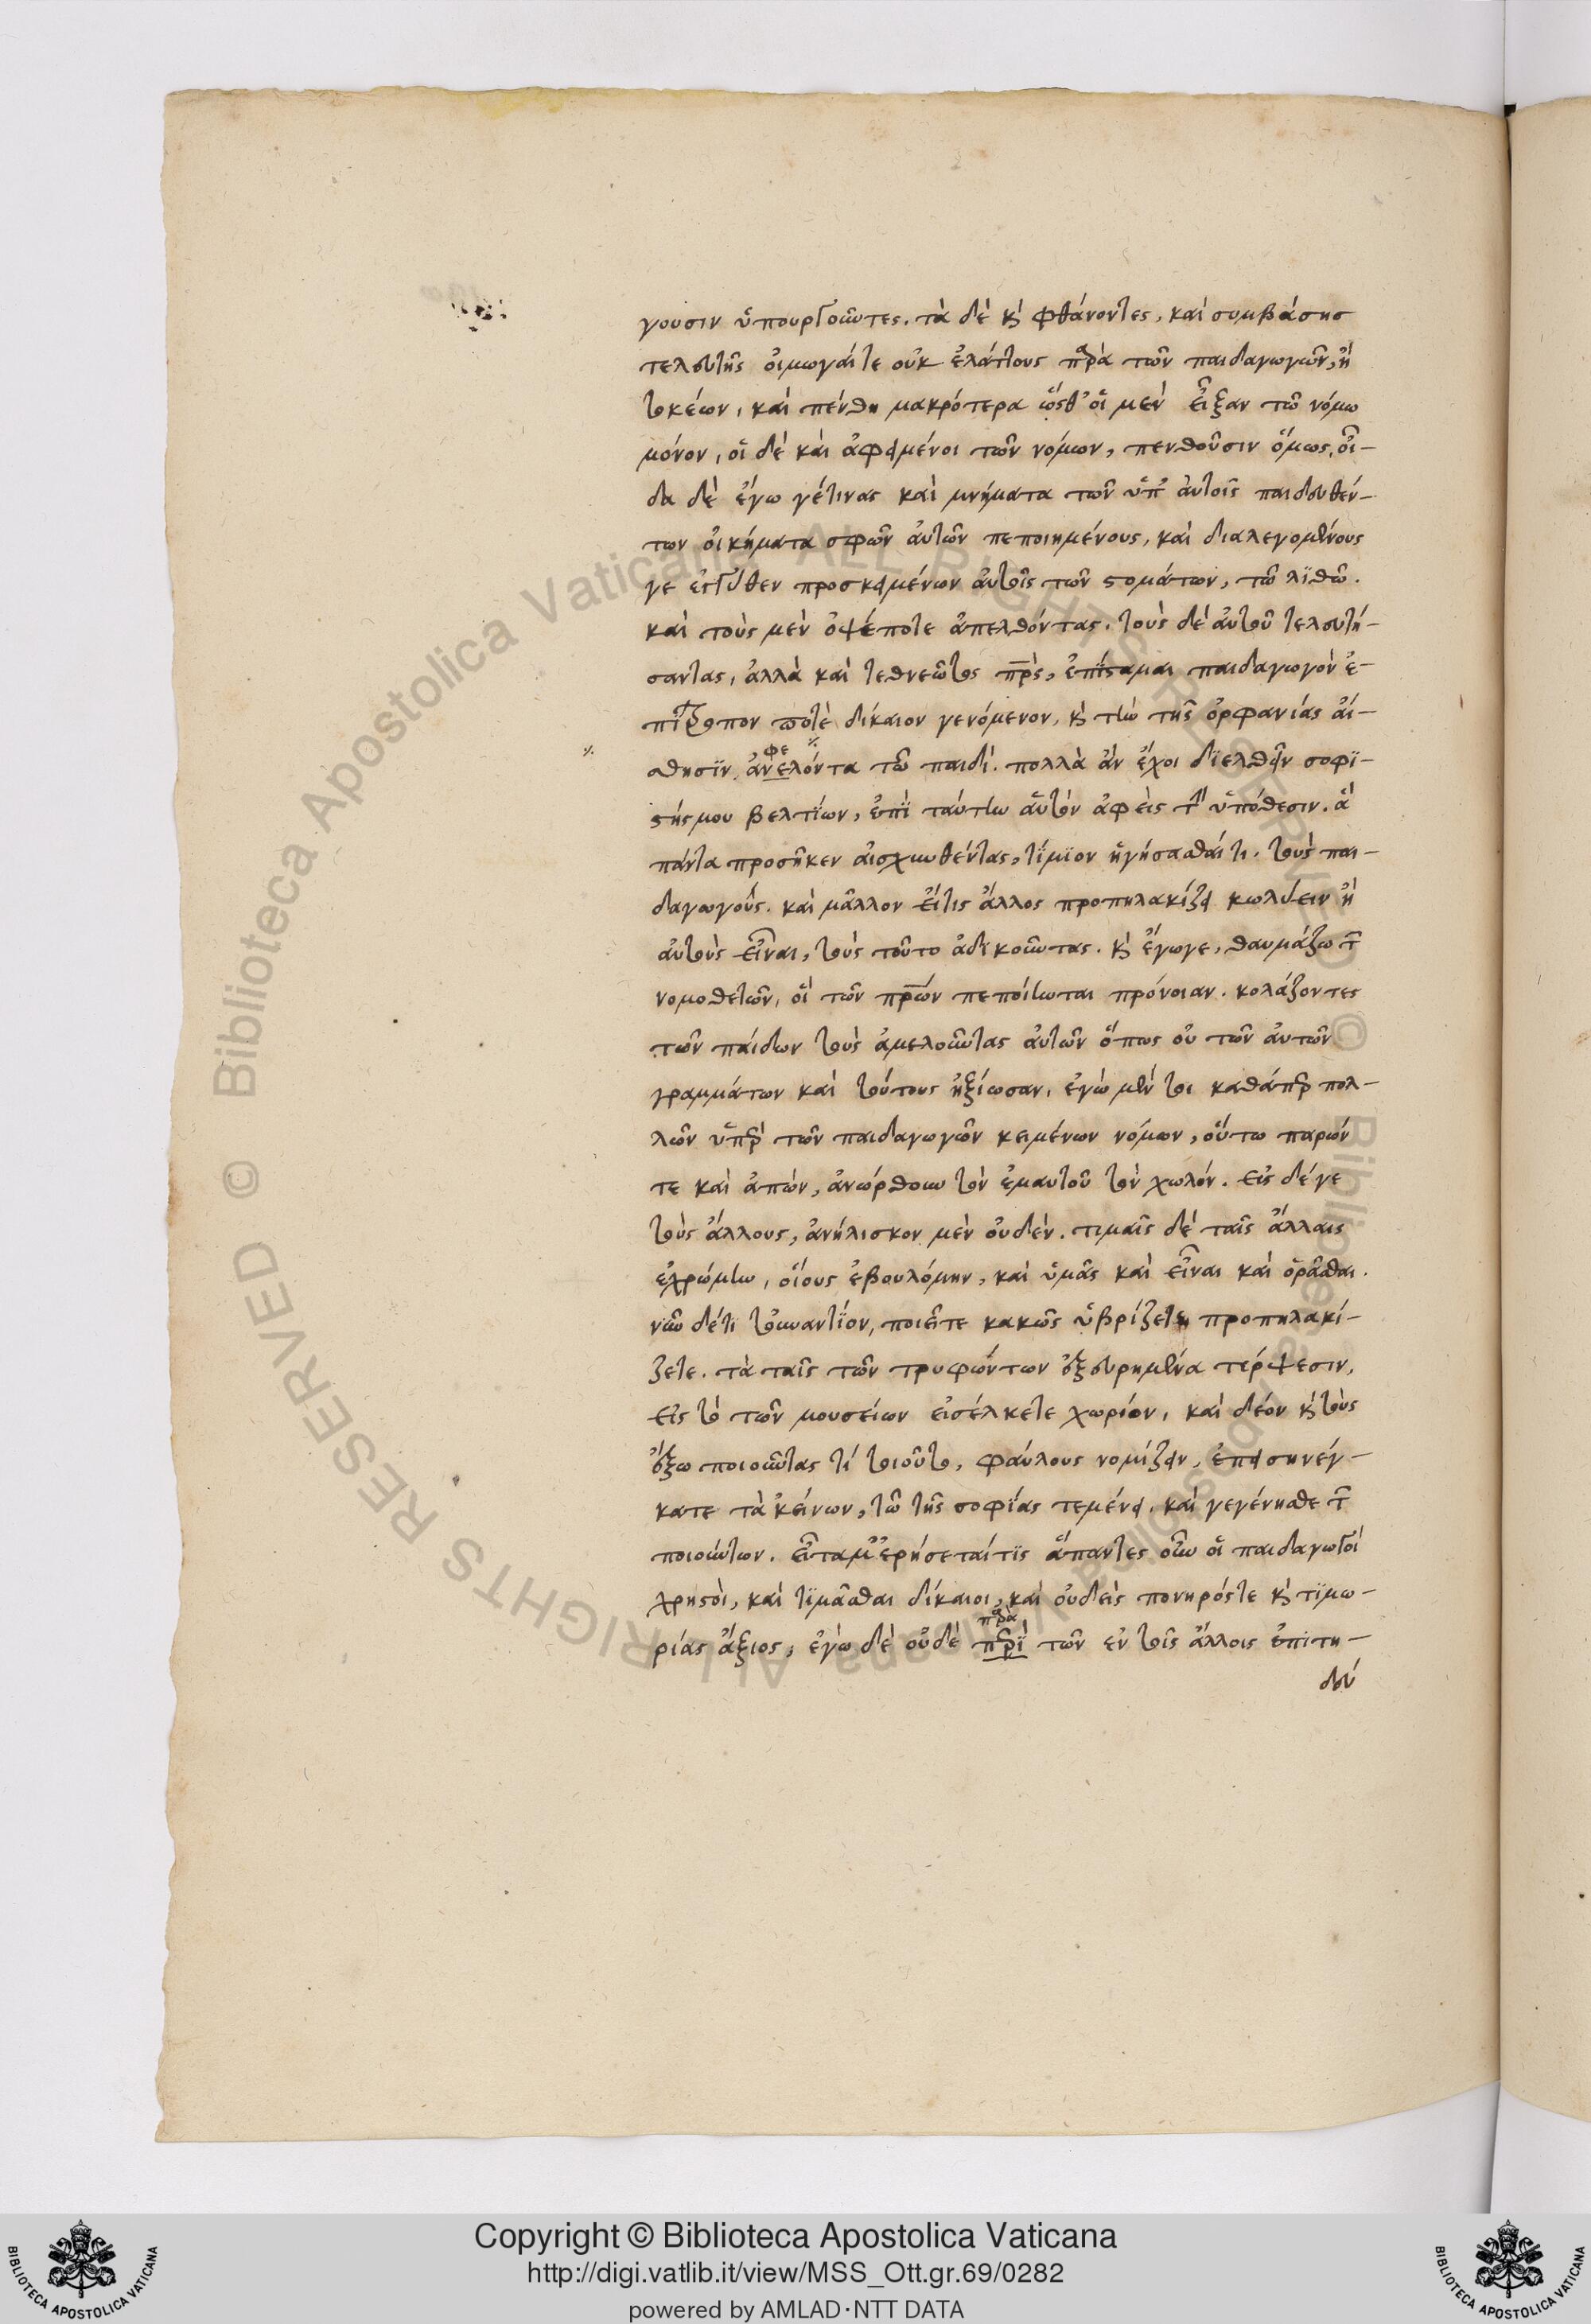 γουσιν ὑπουργοῦντες. τὰ δὲ καὶ φθάνοντες, καὶ συμβάσης
τελευτῆς οἰμωγαί τε οὐκ ἐλάττους παρὰ τῶν παιδαγωγῶν, ἢ
τοκέων, καὶ πένθη μακρότερα ὥσθ' οἱ μὲν εἶξαν τῷ νόμω
μόνον, οἱ δὲ καὶ ἀφειμένοι τῶν νόμων, πενθοῦσιν ὅμως, οἶ-
δα δὲ ἐγω γέ τινας καὶ μνήματα τῶν ὑπ' αὐτοῖς παιδευθέν-
των οἰκήματα σφῶν αὐτῶν πεποιημένους, καὶ διαλεγομένους
γε ἐγγύθεν προσκειμένων αὐτοῖς τῶν στομάτων, τῶ λίθω.
καὶ τοὺς μὲν ὀψέ ποτε ἀπελθόντας. τοὺς δὲ αὐτοῦ τελευτή-
σαντας, ἀλλὰ καὶ τεθνεῶτος πρς, ἐπίσταμαι παιδαγωγὸν ἐ-
πίτροπον ποτὲ δίκαιον γενόμενον, καὶ τὴν τῆς ὀρφανίας αἴ-
⁒ σθησϊν ἀνελόντα τῶ παιδὶ. πολλὰ ἀν ἔχοι διελθεῖν σοφϊ-
φε ⁒
στής μου βελτίων, ἐπὶ ταύτην αὑτὸν ἀφεὶς τὴν ὑπόθεσιν. ἃ
πάντα προσῆκεν αἰσχυνθέντας, τίμϊον ἡγήσασθαί τι, τοὺς παι-
δαγωγούς. καὶ μᾶλλον εἴ τις ἄλλος προπηλακίζει κωλύειν ἢ
αὐτοὺς εἶναι, τοὺς τοῦτο ἀδικοῦντας. καὶ ἔγωγε, θαυμάζω τῶν
νομοθετῶν, οἳ τῶν πρων πεποίηνται πρόνοιαν. κολάζοντες
τῶν παίδων τοὺς ἀμελοῦντας αὐτῶν ὅπως οὐ τῶν αὐτῶν
γραμμάτων καὶ τούτους ἠξίωσαν, ἐγὼ μέν τοι καθάπερ πολ-
λῶν ὑπὲρ τῶν παιδαγωγῶν κειμένων νόμων, οὕτω παρών
τε καὶ ἀπών, ἀνώρθουν τὸν ἐμαυτοῦ τὸν χωλόν. εἰς δέ γε
τοὺς ἄλλους, ἀνήλισκον μὲν οὐδὲν. τιμαῖς δὲ ταῖς ἄλλαις
ἐχρώμην, οἵους ἐβουλόμην, καὶ ὑμᾶς καὶ εἶναι καὶ ὁρᾶσθαι.
νῦν δ' ἔτι τοὐναντίον, ποιεῖτε κακῶς ὑβρίζετε προπηλακί-
ζετε. τὰ ταῖς τῶν τρυφώντων ἐξευρημένα τέρψεσιν,
εἰς τὸ τῶν μουσείων εἰσέλκετε χωρίον, καὶ δέον καὶ τοὺς
ἔξω ποιοῦντας τί τοιοῦτο, φαύλους νομίζειν, ἐπεισηνέγ-
κατε τὰ 'κείνων, τῶ τῆς σοφίας τεμένει. καὶ γεγένησθε τῶν
ποιούντων. εἶτα μ' ἐρήσεταί τις ἅπαντες οὖν οἱ παιδαγωγοὶ
χρηστοὶ, καὶ τιμᾶσθαι δίκαιοι, καὶ οὐδεὶς πονηρός τε καὶ τϊμω-
ρίας ἄξιος, ἐγὼ δὲ οὐδὲ περὶ τῶν ἐν τοῖς ἄλλοις ἐπιτη-
παρὰ
δεύ
Copyright © Biblioteca Apostolica Vaticana
http://digi.vatlib.it/view/MSS_Ott.gr.69/0282
powered by AMLAD·NTT DATA